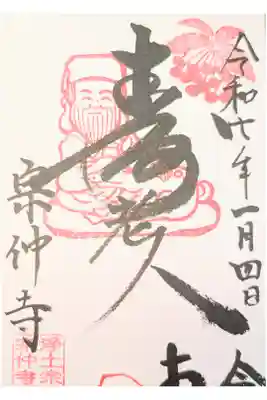 令和七年一月四日
寿老人
宗仲寺
浄土宗
宗仲寺